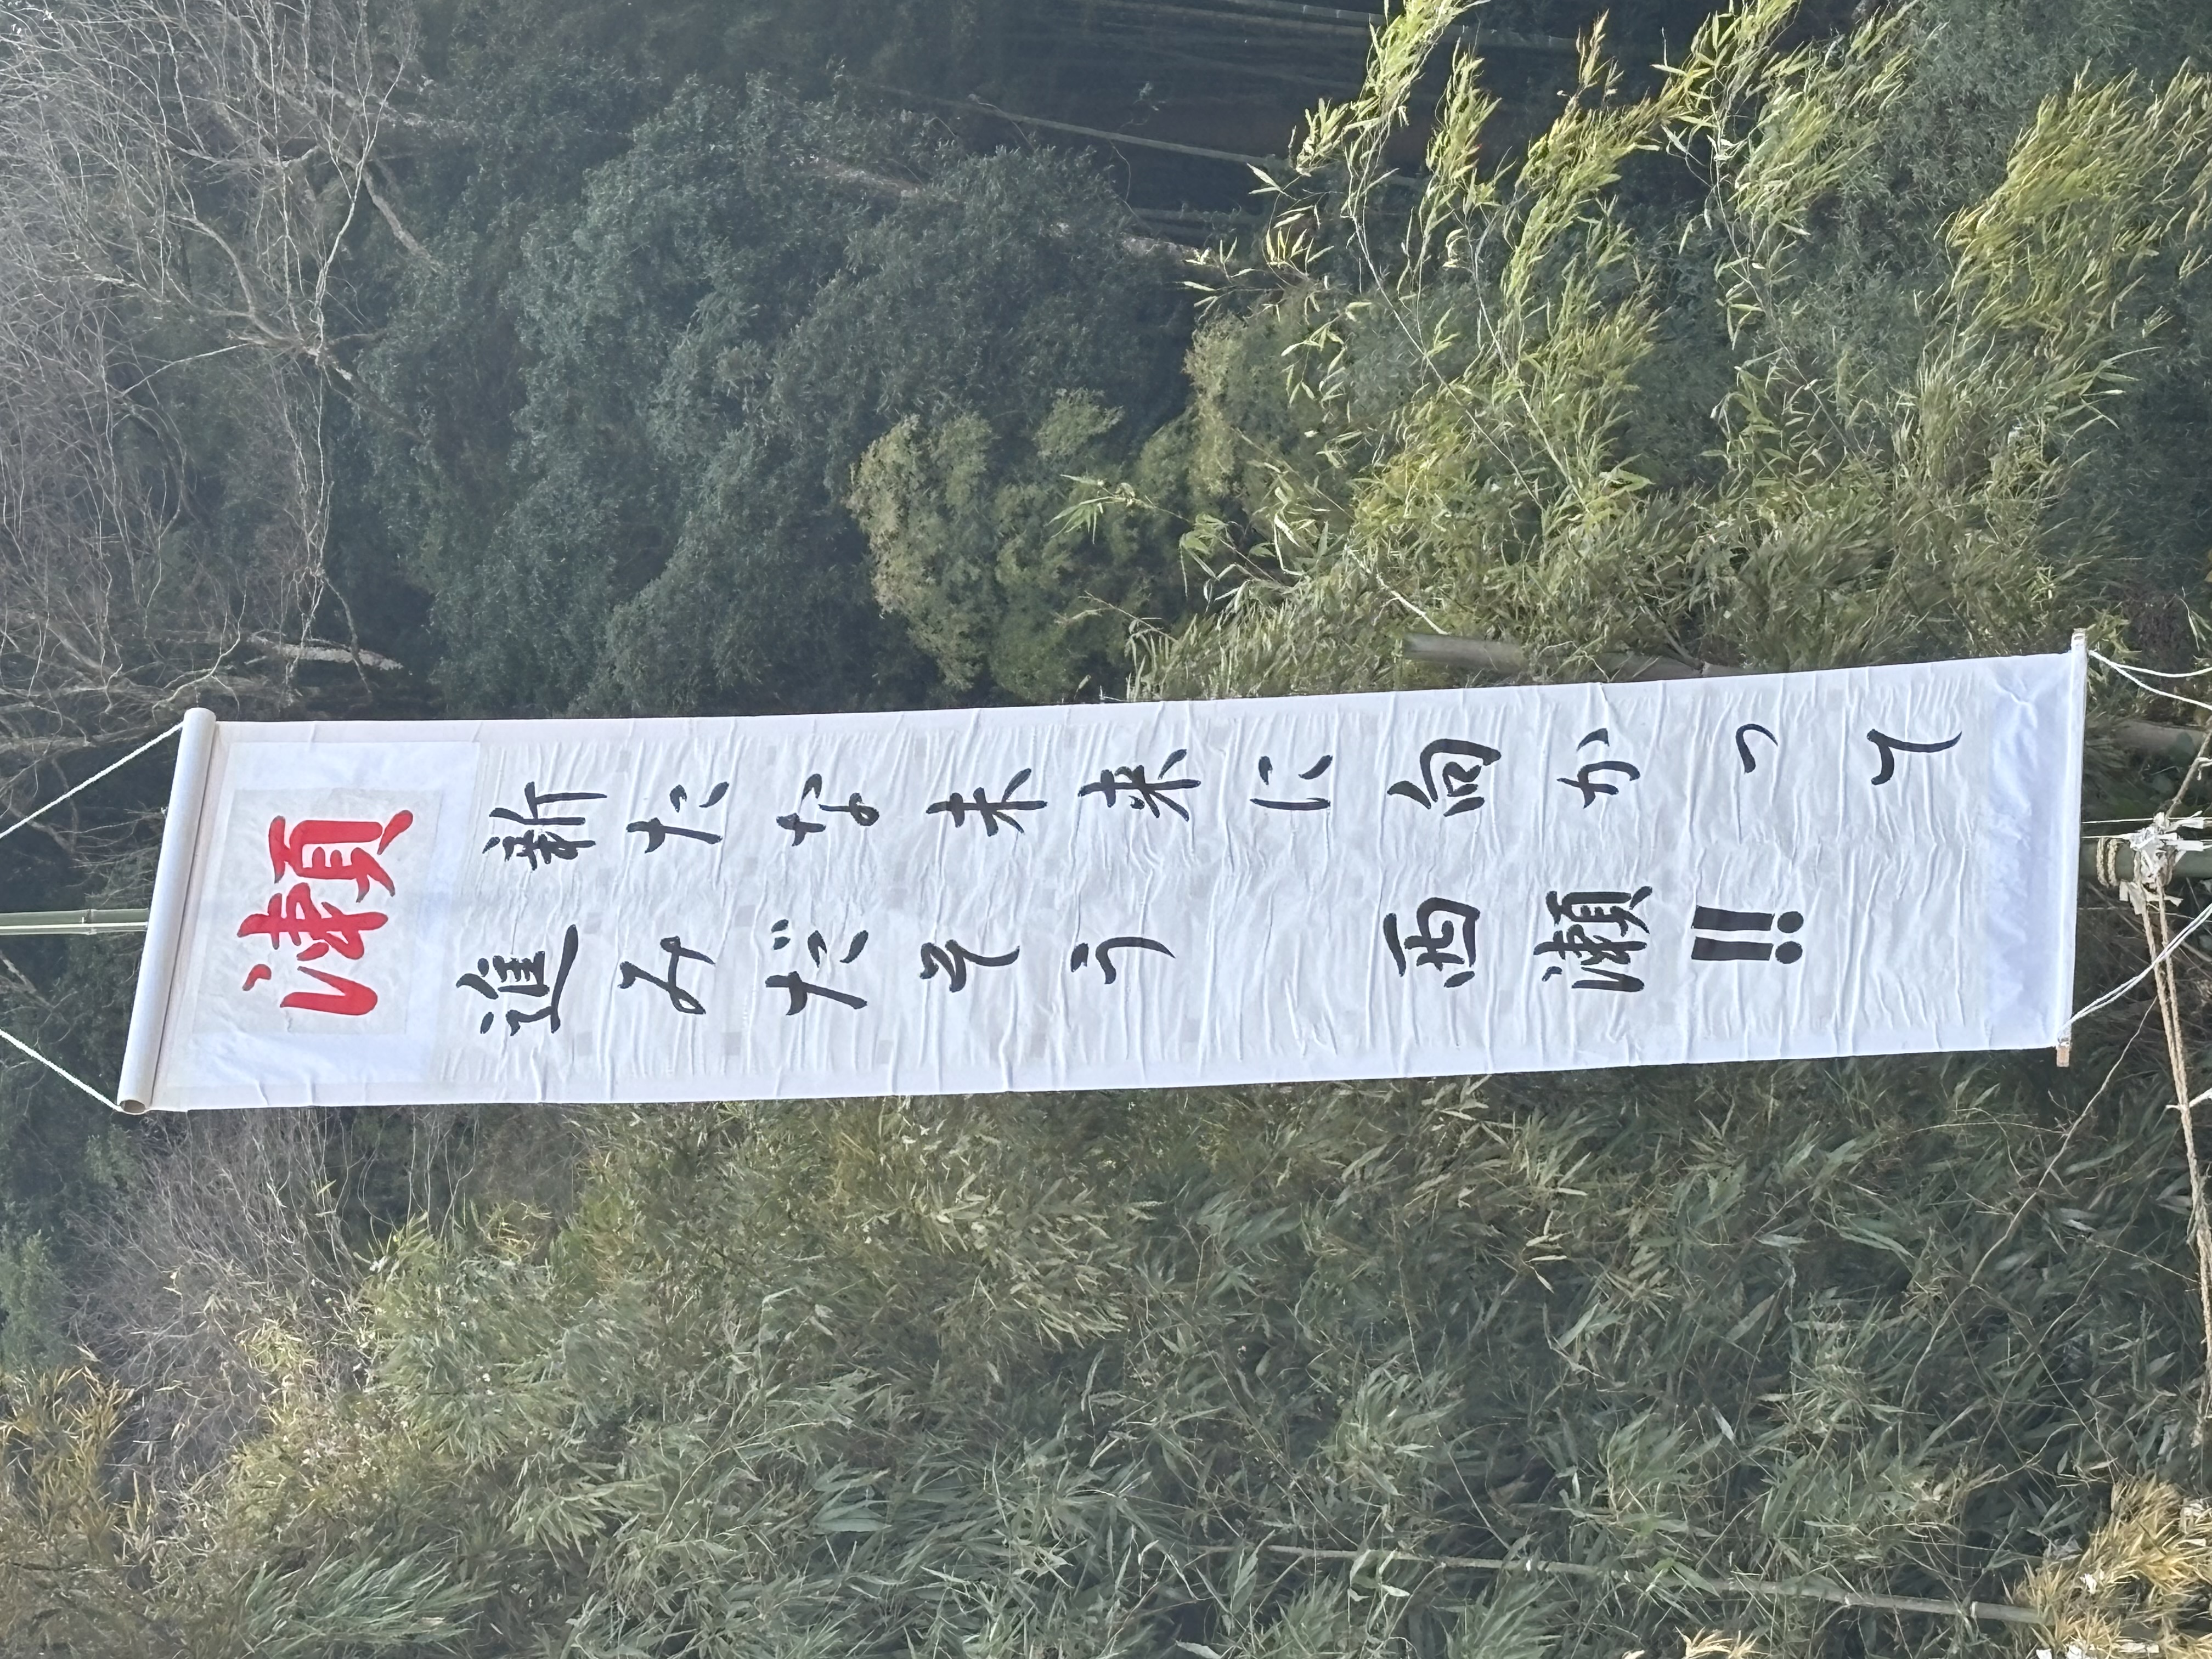 瀬
新たな未来に向かって
進みだそう 西瀬!!